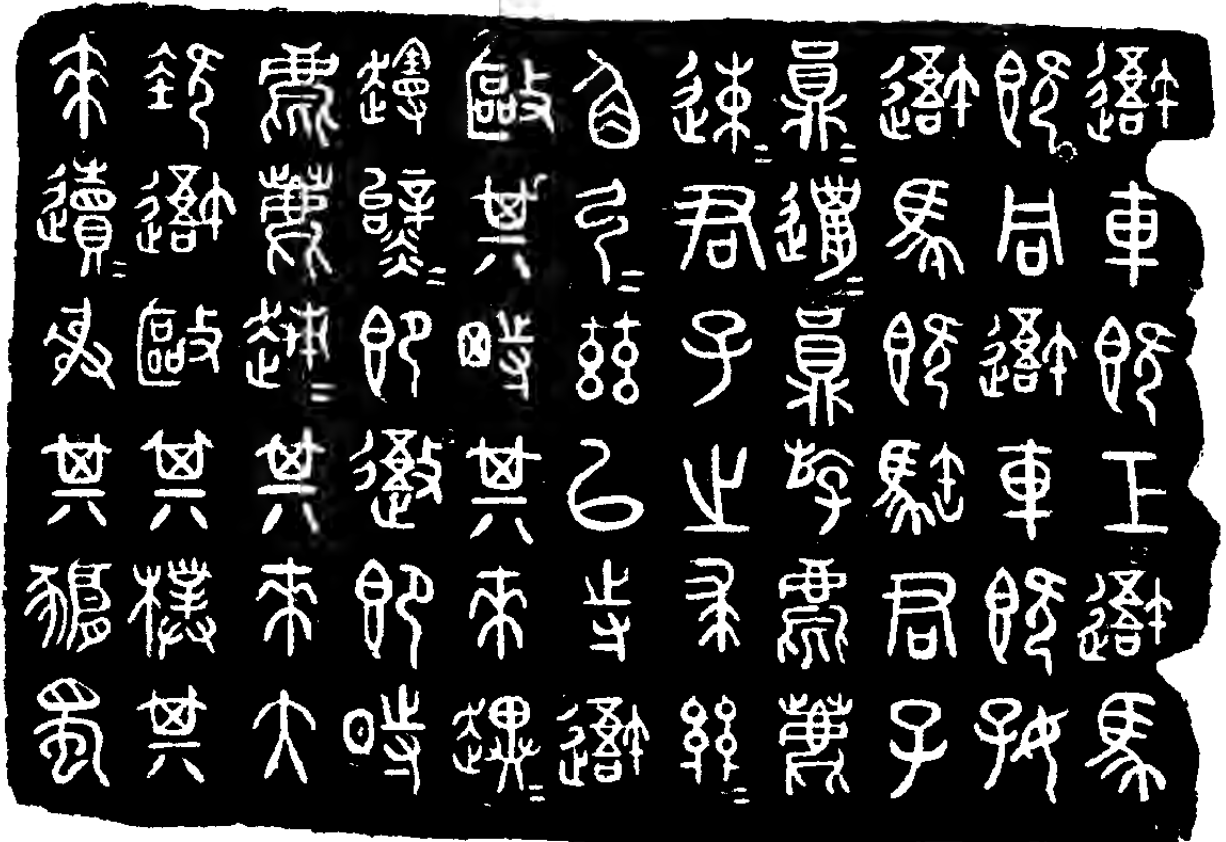 吾車既工吾馬
既同吾車既好
吾馬既𩢸君子
員=邋=員斿麀鹿
速=君子之求
角弓=茲以寺吾
敺其特其來趩=
即御即時
麀鹿趚=其來大
吾敺其樸其
來遺=射其豜蜀